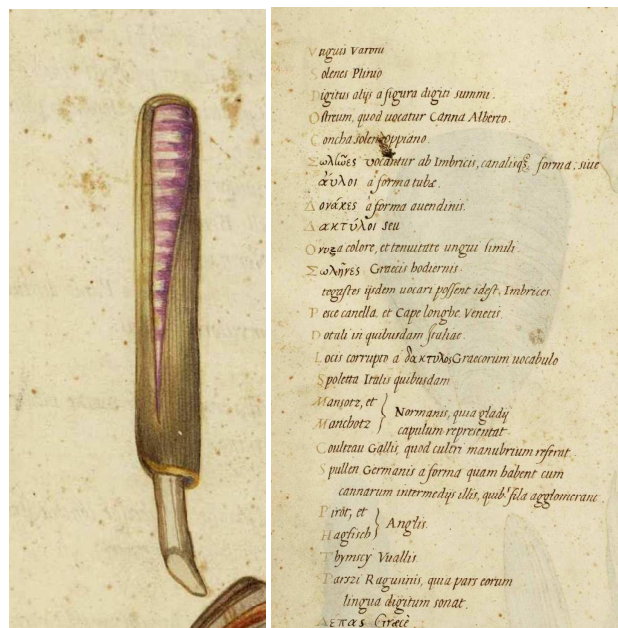 Unguis Varoni
Solenes Plinio
Digitus alijs a figura digiti summi.
Ostreum, quod uocatur Canna Alberto.
Concha solen oppiano.
uocantur ab Imbricis, canalisq; forma, siue
ἀυλοι à forma tubæ.
Δονάκες à forma
Δακτύλοι seu
colore, et tenuitate ungui simili.
Σωλῆνες Graecis hodiernis.
tegastes ijsdem uocari possent idest, Imbrices.
Pesce canella, et Cape longhe Venetis.
Dotuli in quibusdam
Locis corrupto a δακτυλος Graecorum uocabulo
Spoletta Italis quibusdam
Mansotz, et
Manchotz } Normanis, quia gladij
capulum representat.
Couteau Gallis, quod cultri manubrium referat.
Spullen Germanis a forma quam habent cum
cannarum intermedijs illis, quib. fila agglomerant
Pirot, et
Hagfisch } Anglis.
Thymscy Vuallis.
Parszi Ragusinis, quia pars eorum
lingua digitum sonat.
Λεπας Græcè